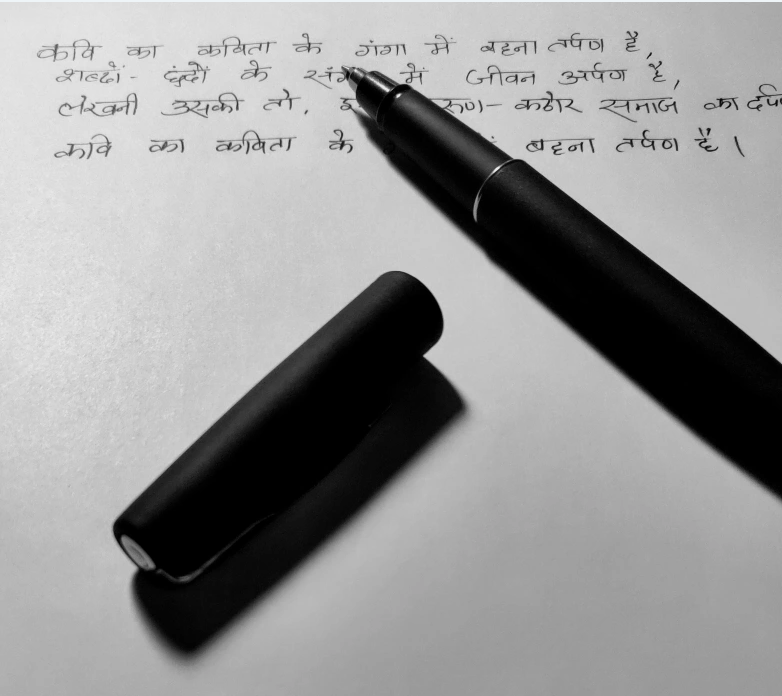 कवि का कविता के गंगा में बहना तर्पण है,
शब्दों- छंदों के में जीवन अर्पण है,
लेखनी उसकी तो, कठोर समाज का
कवि का कविता के बहना तर्पण है।